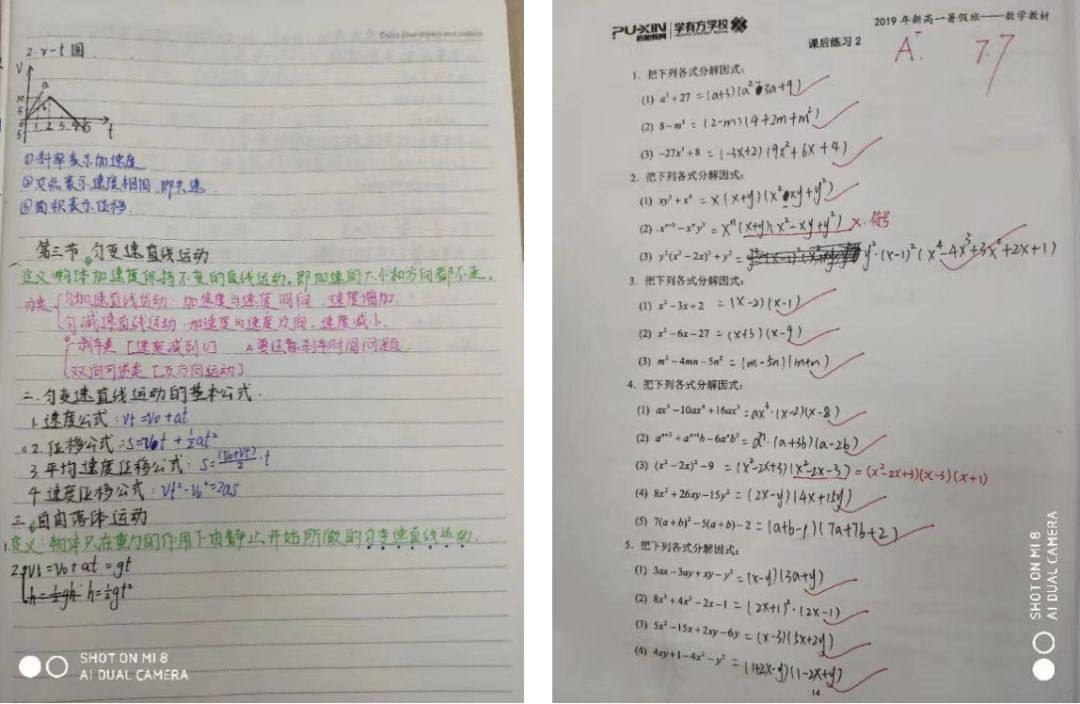 Enjoy your dream and culture
2. v-t图
V
a
10
5
0 1 2 3 4 5 t
5
①斜率表示加速度
②交点表示速度相同,即共速.
③面积表示位移.
第三节 匀变速直线运动
一、定义:物体加速度保持不变的直线运动。即加速度的大小和方向都不变。
分类 匀加速直线运动:加速度与速度同向,速度增加.
匀减速直线运动:加速度与速度反向,速度减小.
刹车类[速度减到0] △要注意刹车时间问题.
双向可逆类[反方向运动]
二.匀变速直线运动的基本公式.
1.速度公式:vt=v0+at
△2.位移公式:s=v0t+½at²
3.平均速度位移公式:s=(v0+vt)/2·t
4.速度位移公式:vt²-v0²=2as
三.自由落体运动
1.定义:物体只在重力的作用下由静止开始所做的匀变速直线运动.
2. vt=v0+at=gt
h=½gt²
SHOT ON MI 8
AI DUAL CAMERA
PU-XIN 学有方学校
2019年新高一暑假班——数学教材
课后练习2
A⁻ 7.7
1. 把下列各式分解因式:
(1) a³+27 =(a+3)(a²-3a+9)
(2) 8-m³ =(2-m)(4+2m+m²)
(3) -27x³+8 =(-3x+2)(9x²+6x+4)
2. 把下列各式分解因式:
(1) xy³+x⁴ =x(x+y)(x²-xy+y²)
(2) xⁿ⁺³-xⁿy³ =xⁿ(x+y)(x²-xy+y²) ×.符号
(3) y²(x²-2x)³+y² = y²·(x-1)²(x⁴-4x³+3x²+2x+1)
3. 把下列各式分解因式:
(1) x²-3x+2 =(x-2)(x-1)
(2) x²-6x-27 =(x+3)(x-9)
(3) m²-4mn-5n² =(m-5n)(m+n)
4. 把下列各式分解因式:
(1) ax⁵-10ax⁴+16ax³ =ax³·(x-2)(x-8)
(2) aⁿ⁺²+aⁿ⁺¹b-6aⁿb² =aⁿ·(a+3b)(a-2b)
(3) (x²-2x)²-9 =(x²-2x+3)(x²-2x-3)=(x²-2x+3)(x-3)(x+1)
(4) 8x²+26xy-15y² =(2x-y)(4x+15y)
(5) 7(a+b)²-5(a+b)-2 =(a+b-1)(7a+7b+2)
5. 把下列各式分解因式:
(1) 3ax-3ay+xy-y² =(x-y)(3a+y)
(2) 8x³+4x²-2x-1 =(2x+1)²·(2x-1)
(3) 5x²-15x+2xy-6y =(x-3)(5x+2y)
(4) 4xy+1-4x²-y² =(1+2x-y)(1-2x+y)
14
SHOT ON MI 8
AI DUAL CAMERA